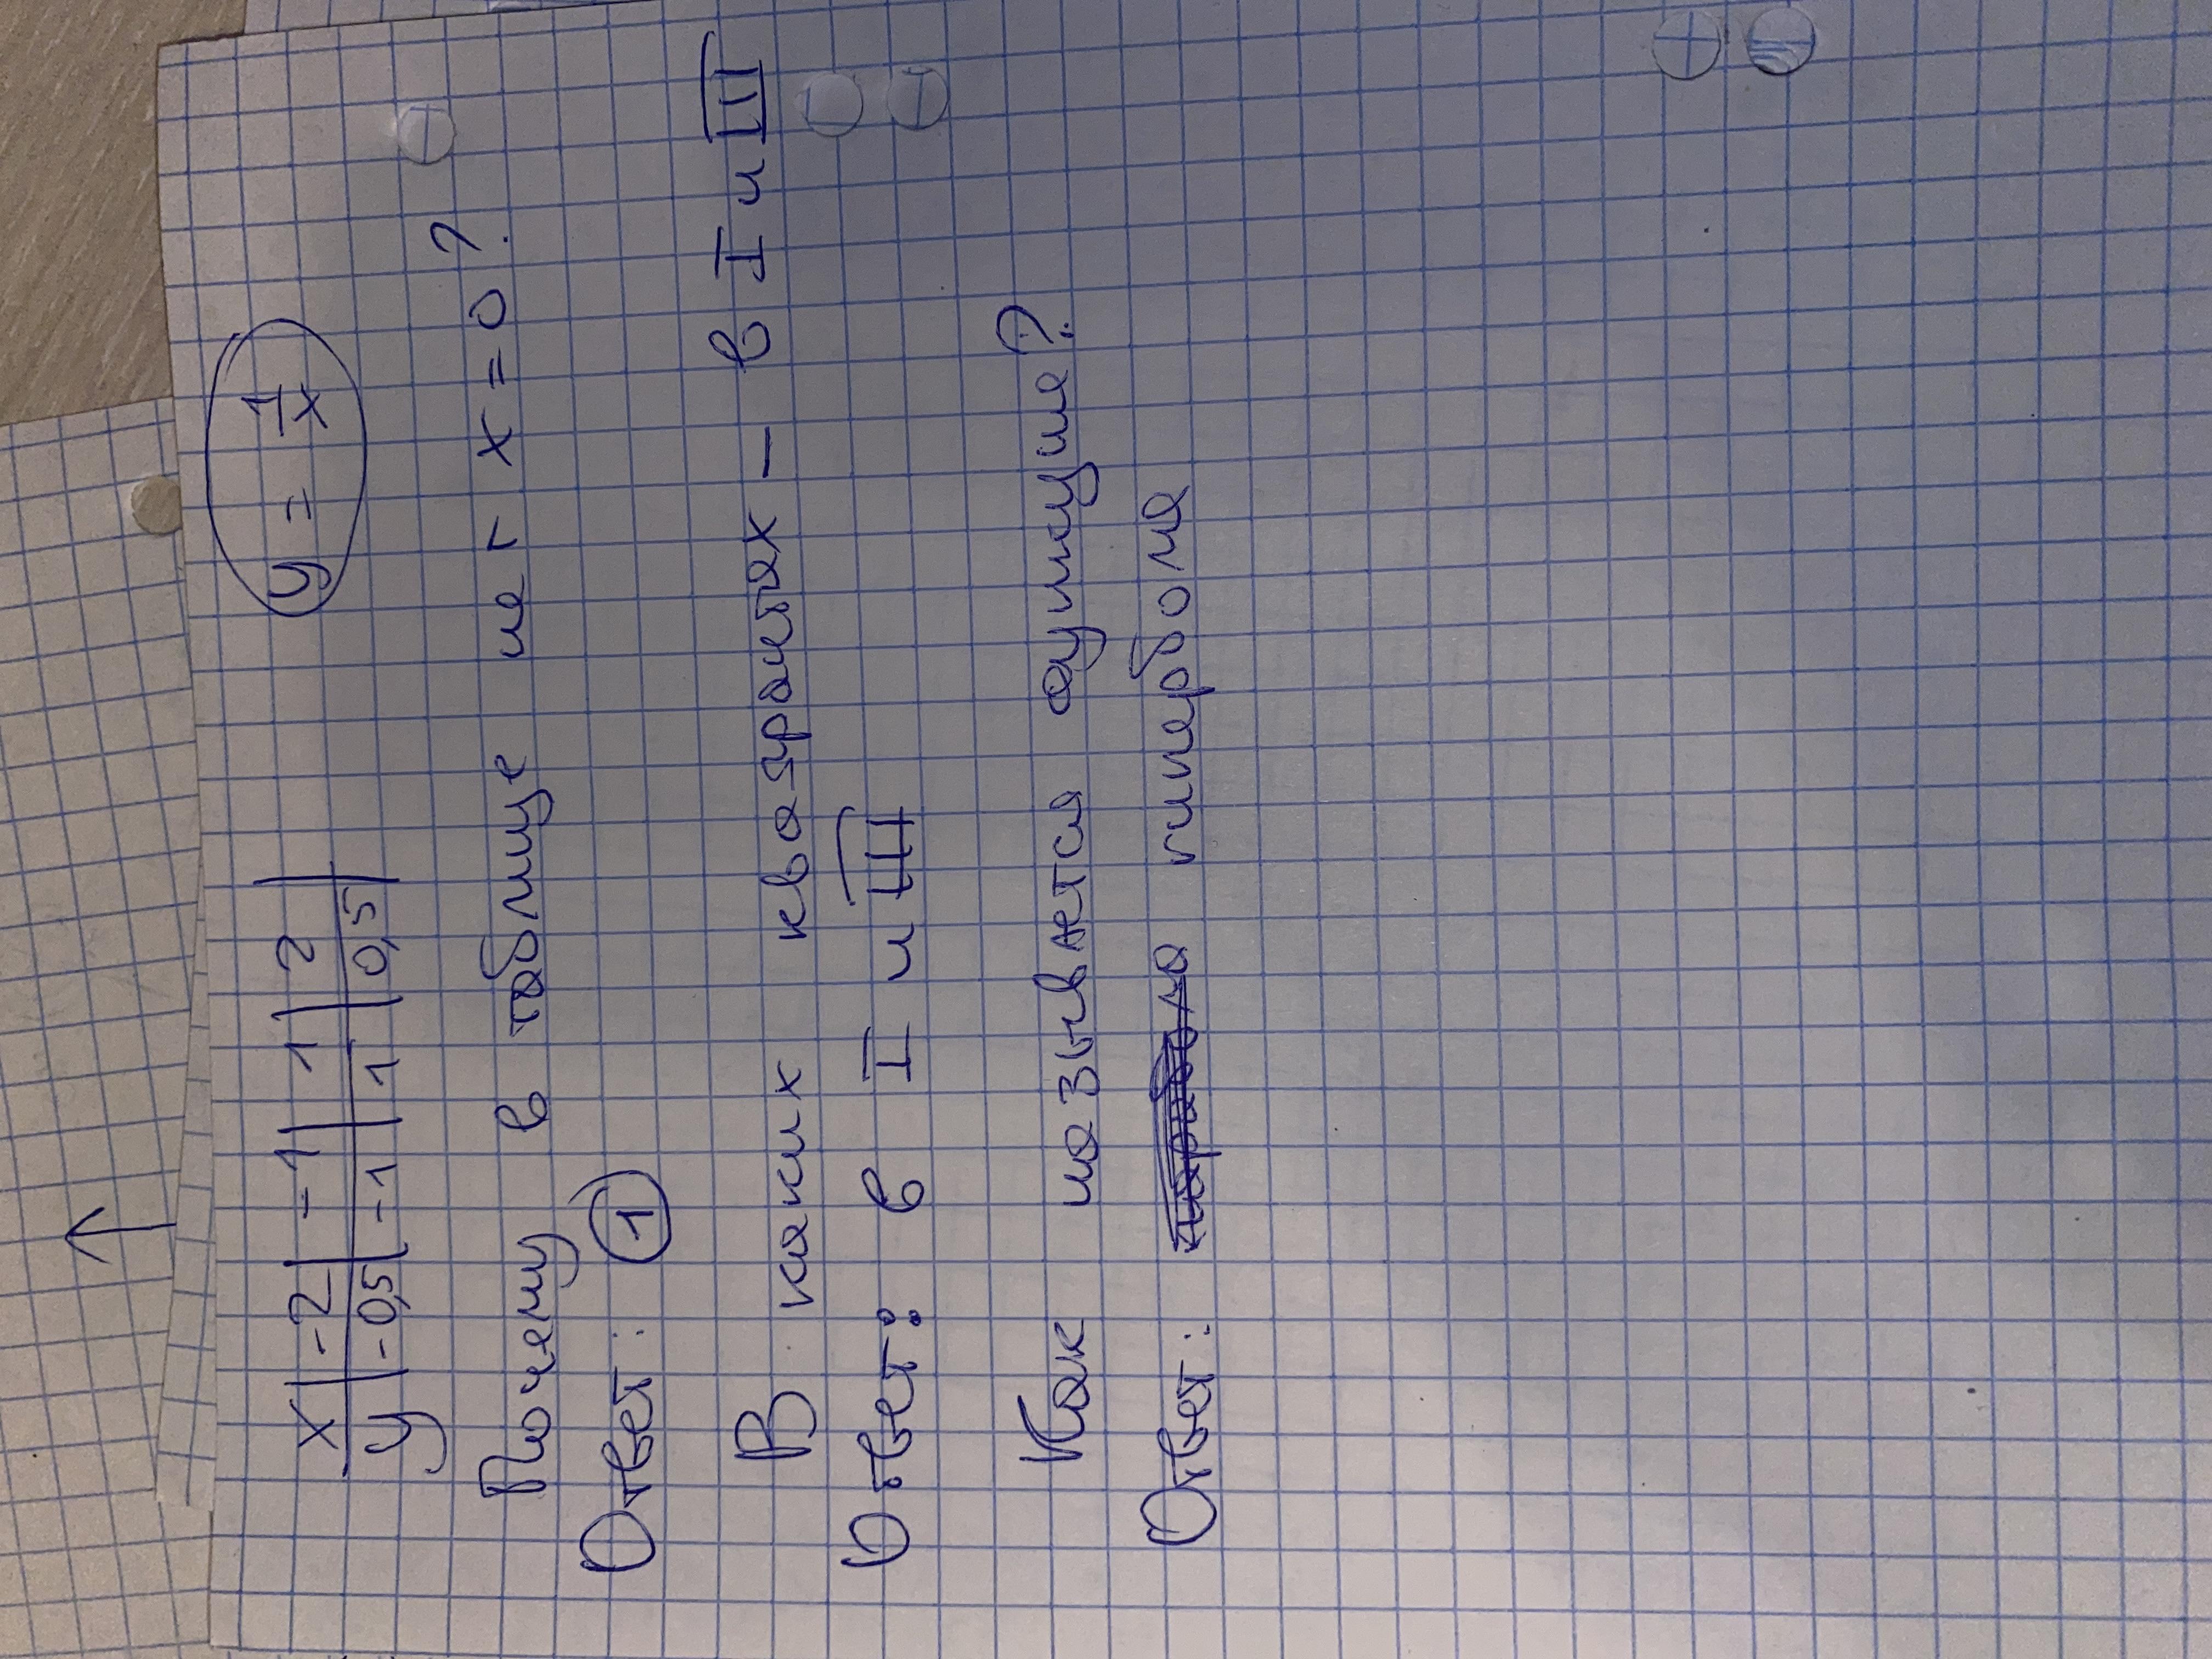 y = 1/x
x | -2 | -1 | 1 | 2 |
y | -0,5 | -1 | 1 | 0,5 |
Почему в таблице нет x = 0?
Ответ: 1
В каких квадрантах – в I и III
Ответ: в I и III
Как называется функция?
Ответ: гипербола